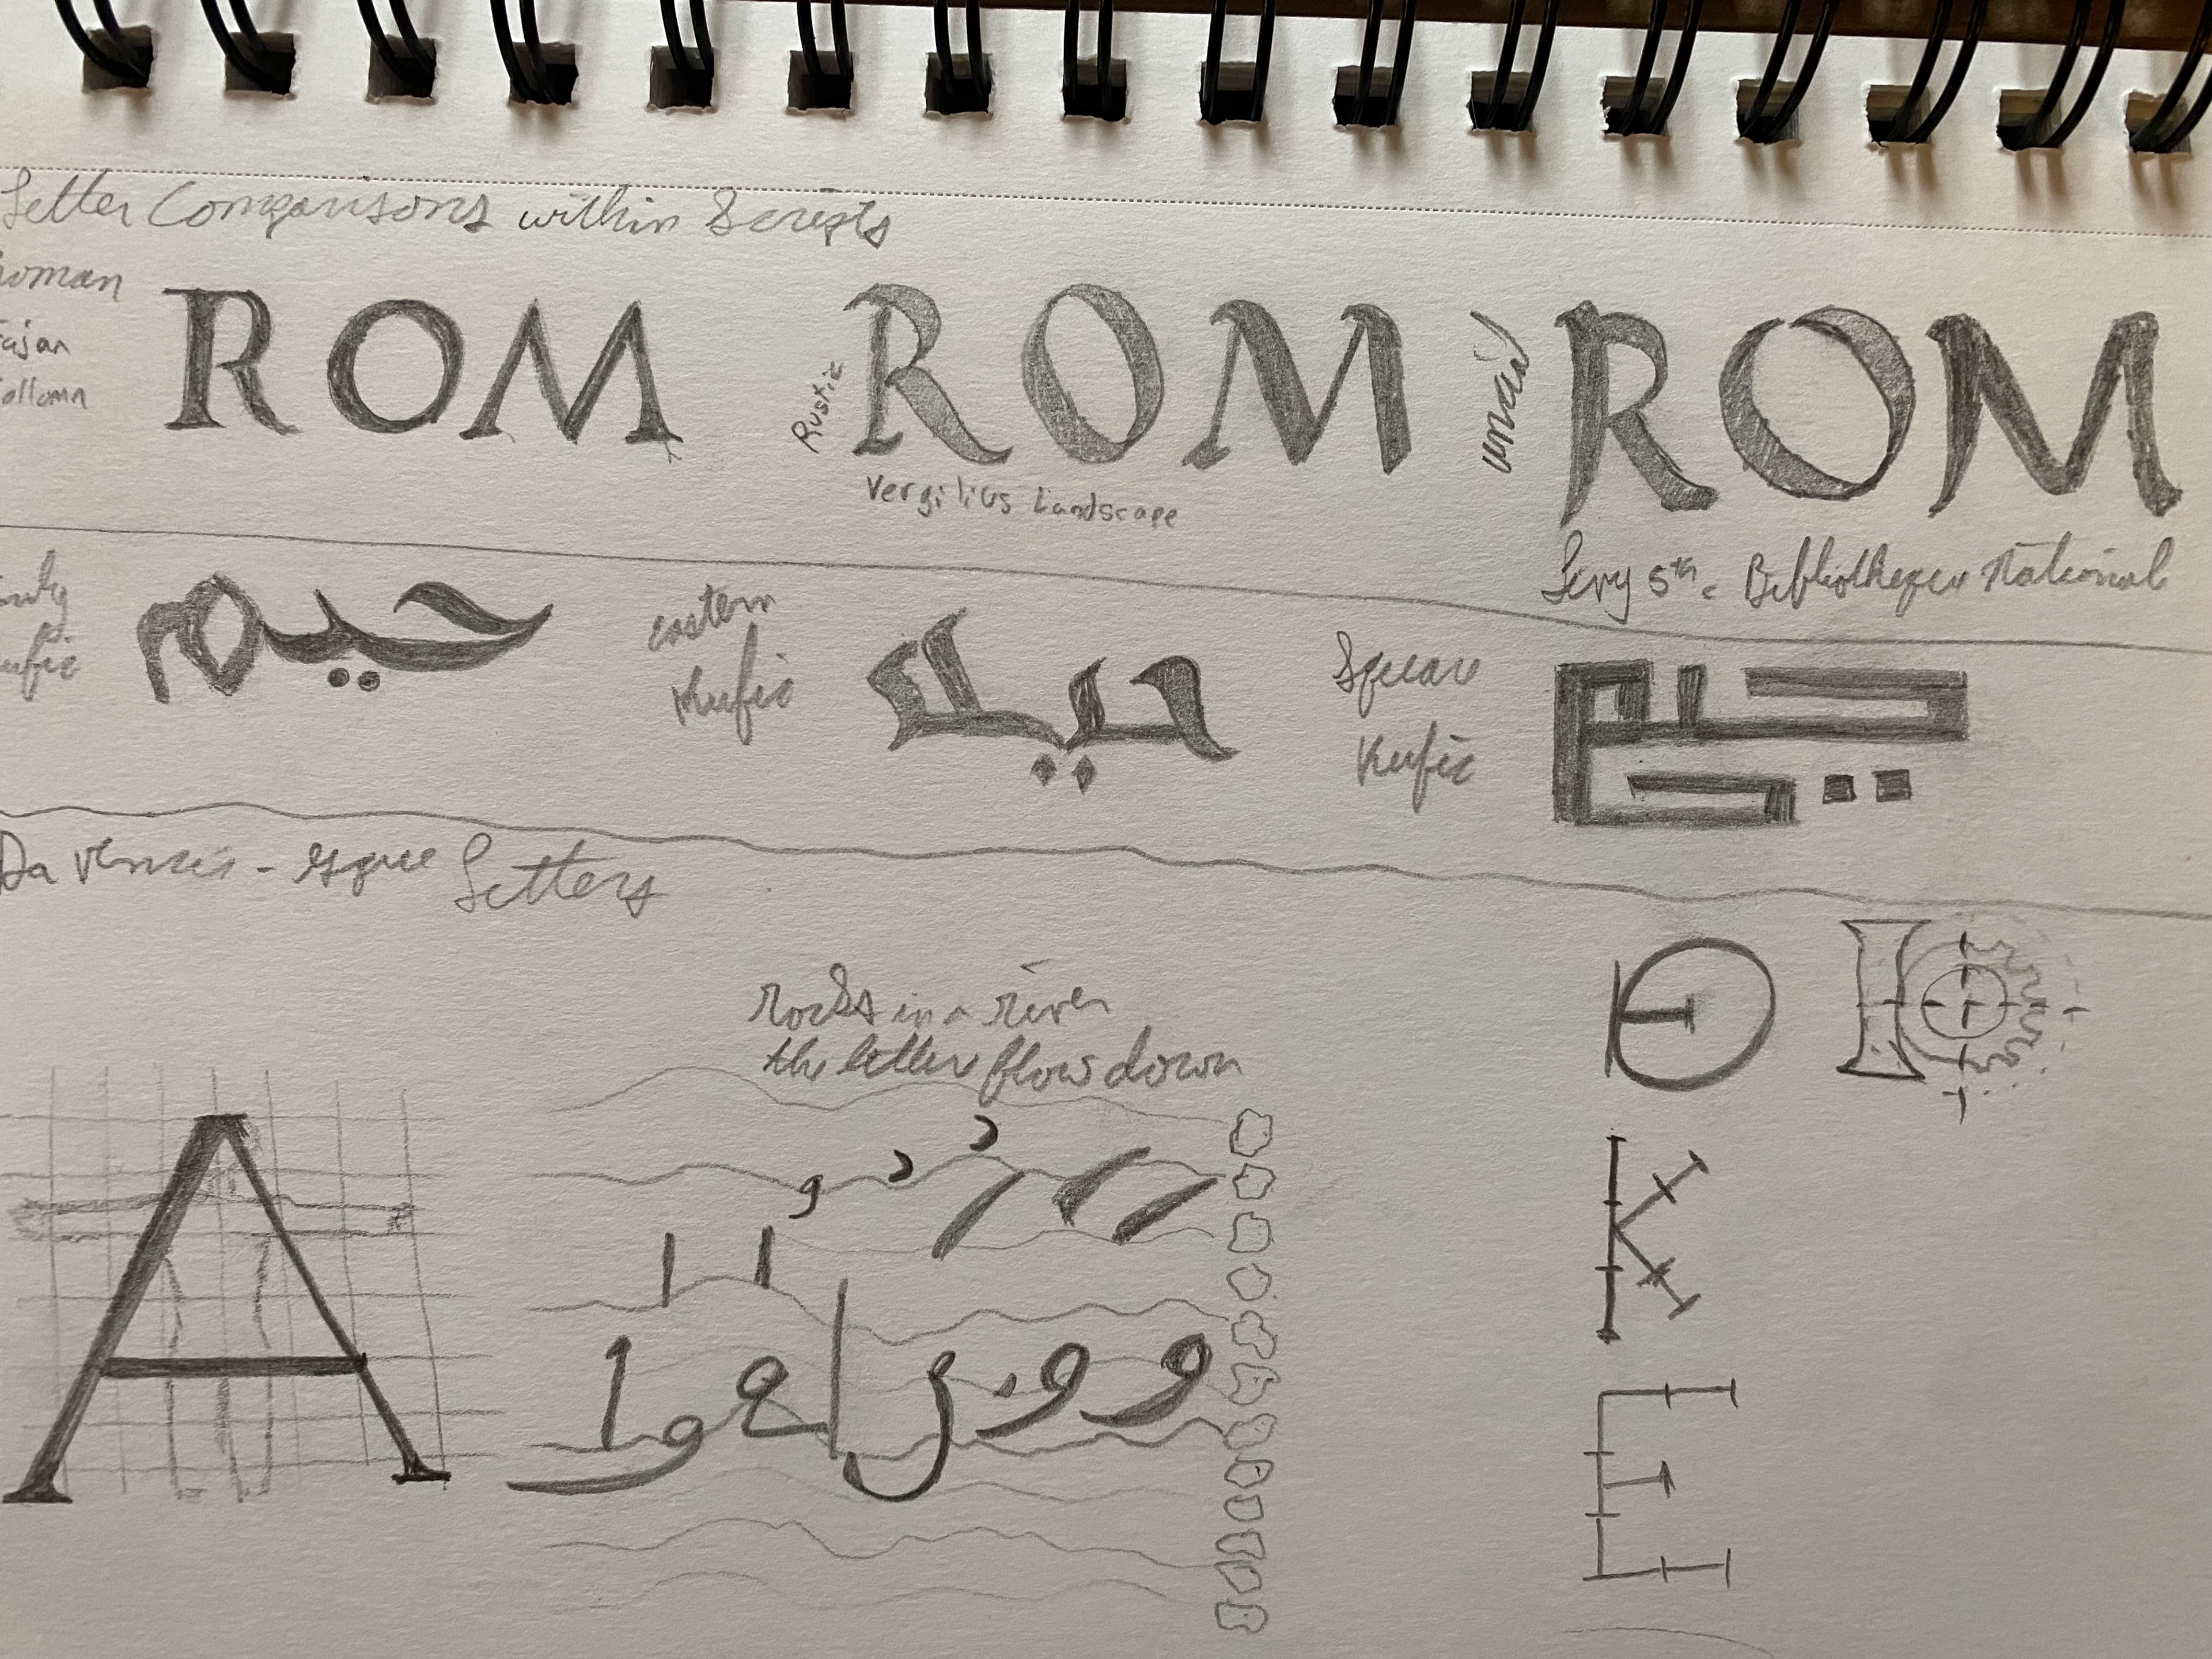 Letter Comparisons within Scripts
Roman
Trajan
Collomn
ROM
Rustic
ROM
Vergilius Landscape
uncial
ROM
Livy 5th c Bibliotheque National
Kufic
حيم
eastern
Kufic
حيم
Square
Kufic
حيم
Da Vinci-esque Letters
rocks in a river
the letter flow down
A
K
E